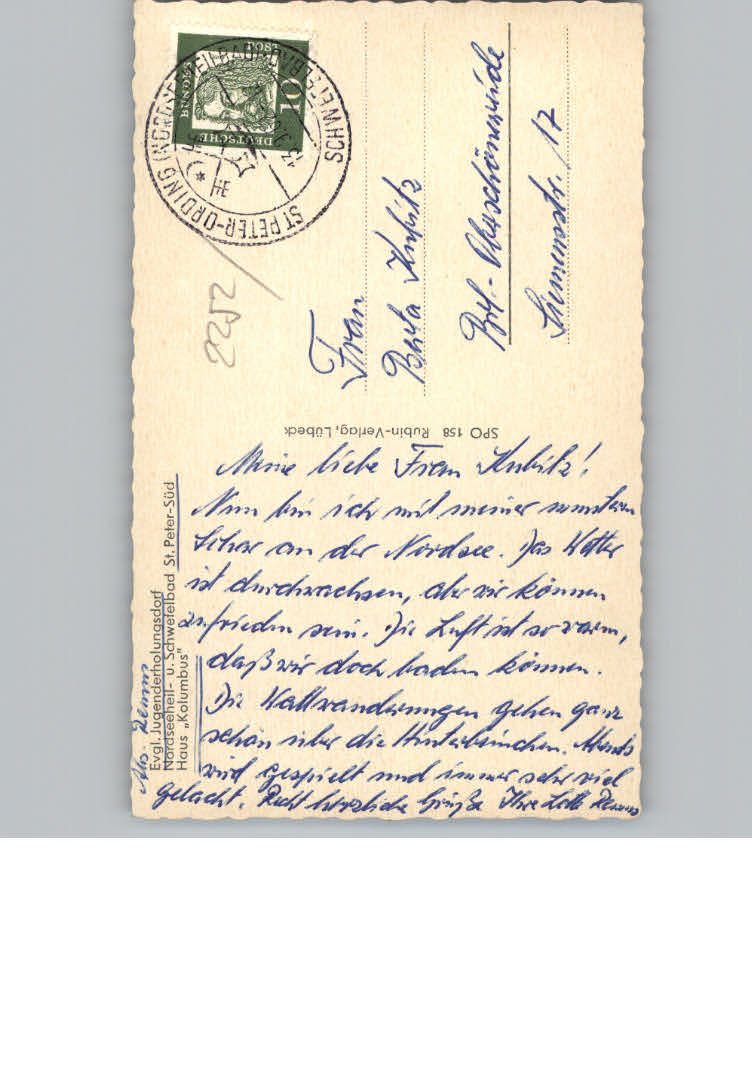 Evgl. Jugenderholungsdorf
Nordseeheil- u. Schwefelbad St. Peter-Süd
Haus „Kolumbus"
Meine liebe Frau Kubitz!
Nun bin ich mit meiner munteren
Schar an der Nordsee. Das Wetter
ist durchwachsen, aber wir können
zufrieden sein. Die Luft ist so warm,
daß wir doch baden können.
Die Wattwanderungen gehen ganz
schön über die Hinterbeinchen. Abends
wird gespielt und immer sehr viel
gelacht. Recht herzliche Grüße Ihre Lotte
SPO 158 Rubin-Verlag, Lübeck
2252
DEUTSCHE
BUNDESPOST
10
ST PETER-ORDING (NORDSEEHEILBAD
SCHWEFELBAD
Frau
Berta Kubitz
Bln.-Oberschöneweide
Siemensstr. 17